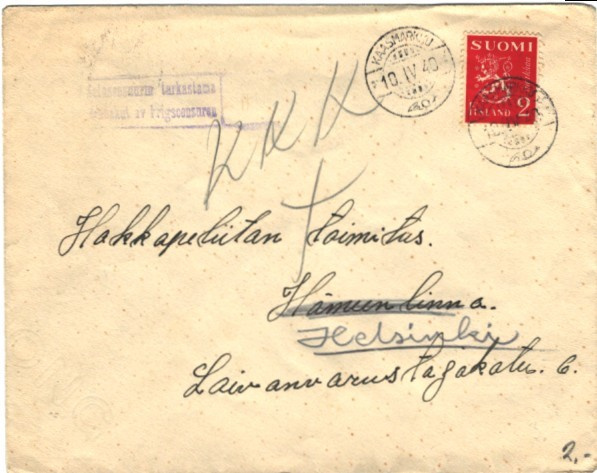 KAASMARKKU
10.IV.40
SUOMI
FINLAND 2
tarkastama
av krigscensuren
KKK
Hakkapeliitan toimitus.
Hämeenlinna.
Helsinki
Laivanvarustajakatu. 6.
2,-